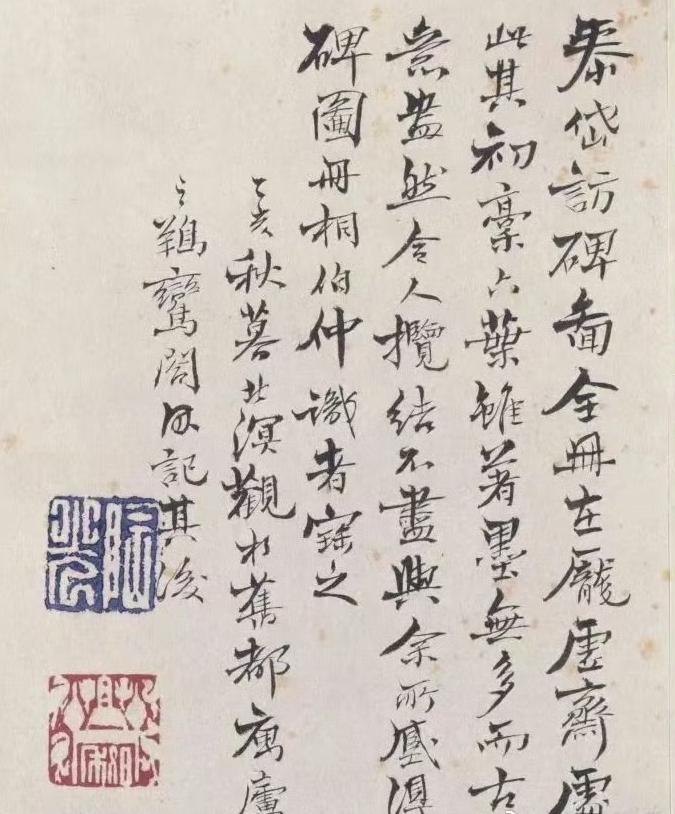 泰岱訪碑啚全冊在龐虛齋處
此其初稾六葉雖著墨無多而古
意盎然令人攬結不盡與余所藏得
碑圖冊相伯仲識者寶之
乙亥秋暮北溟觀於舊都寓廬
之翔鸞閣因記其後